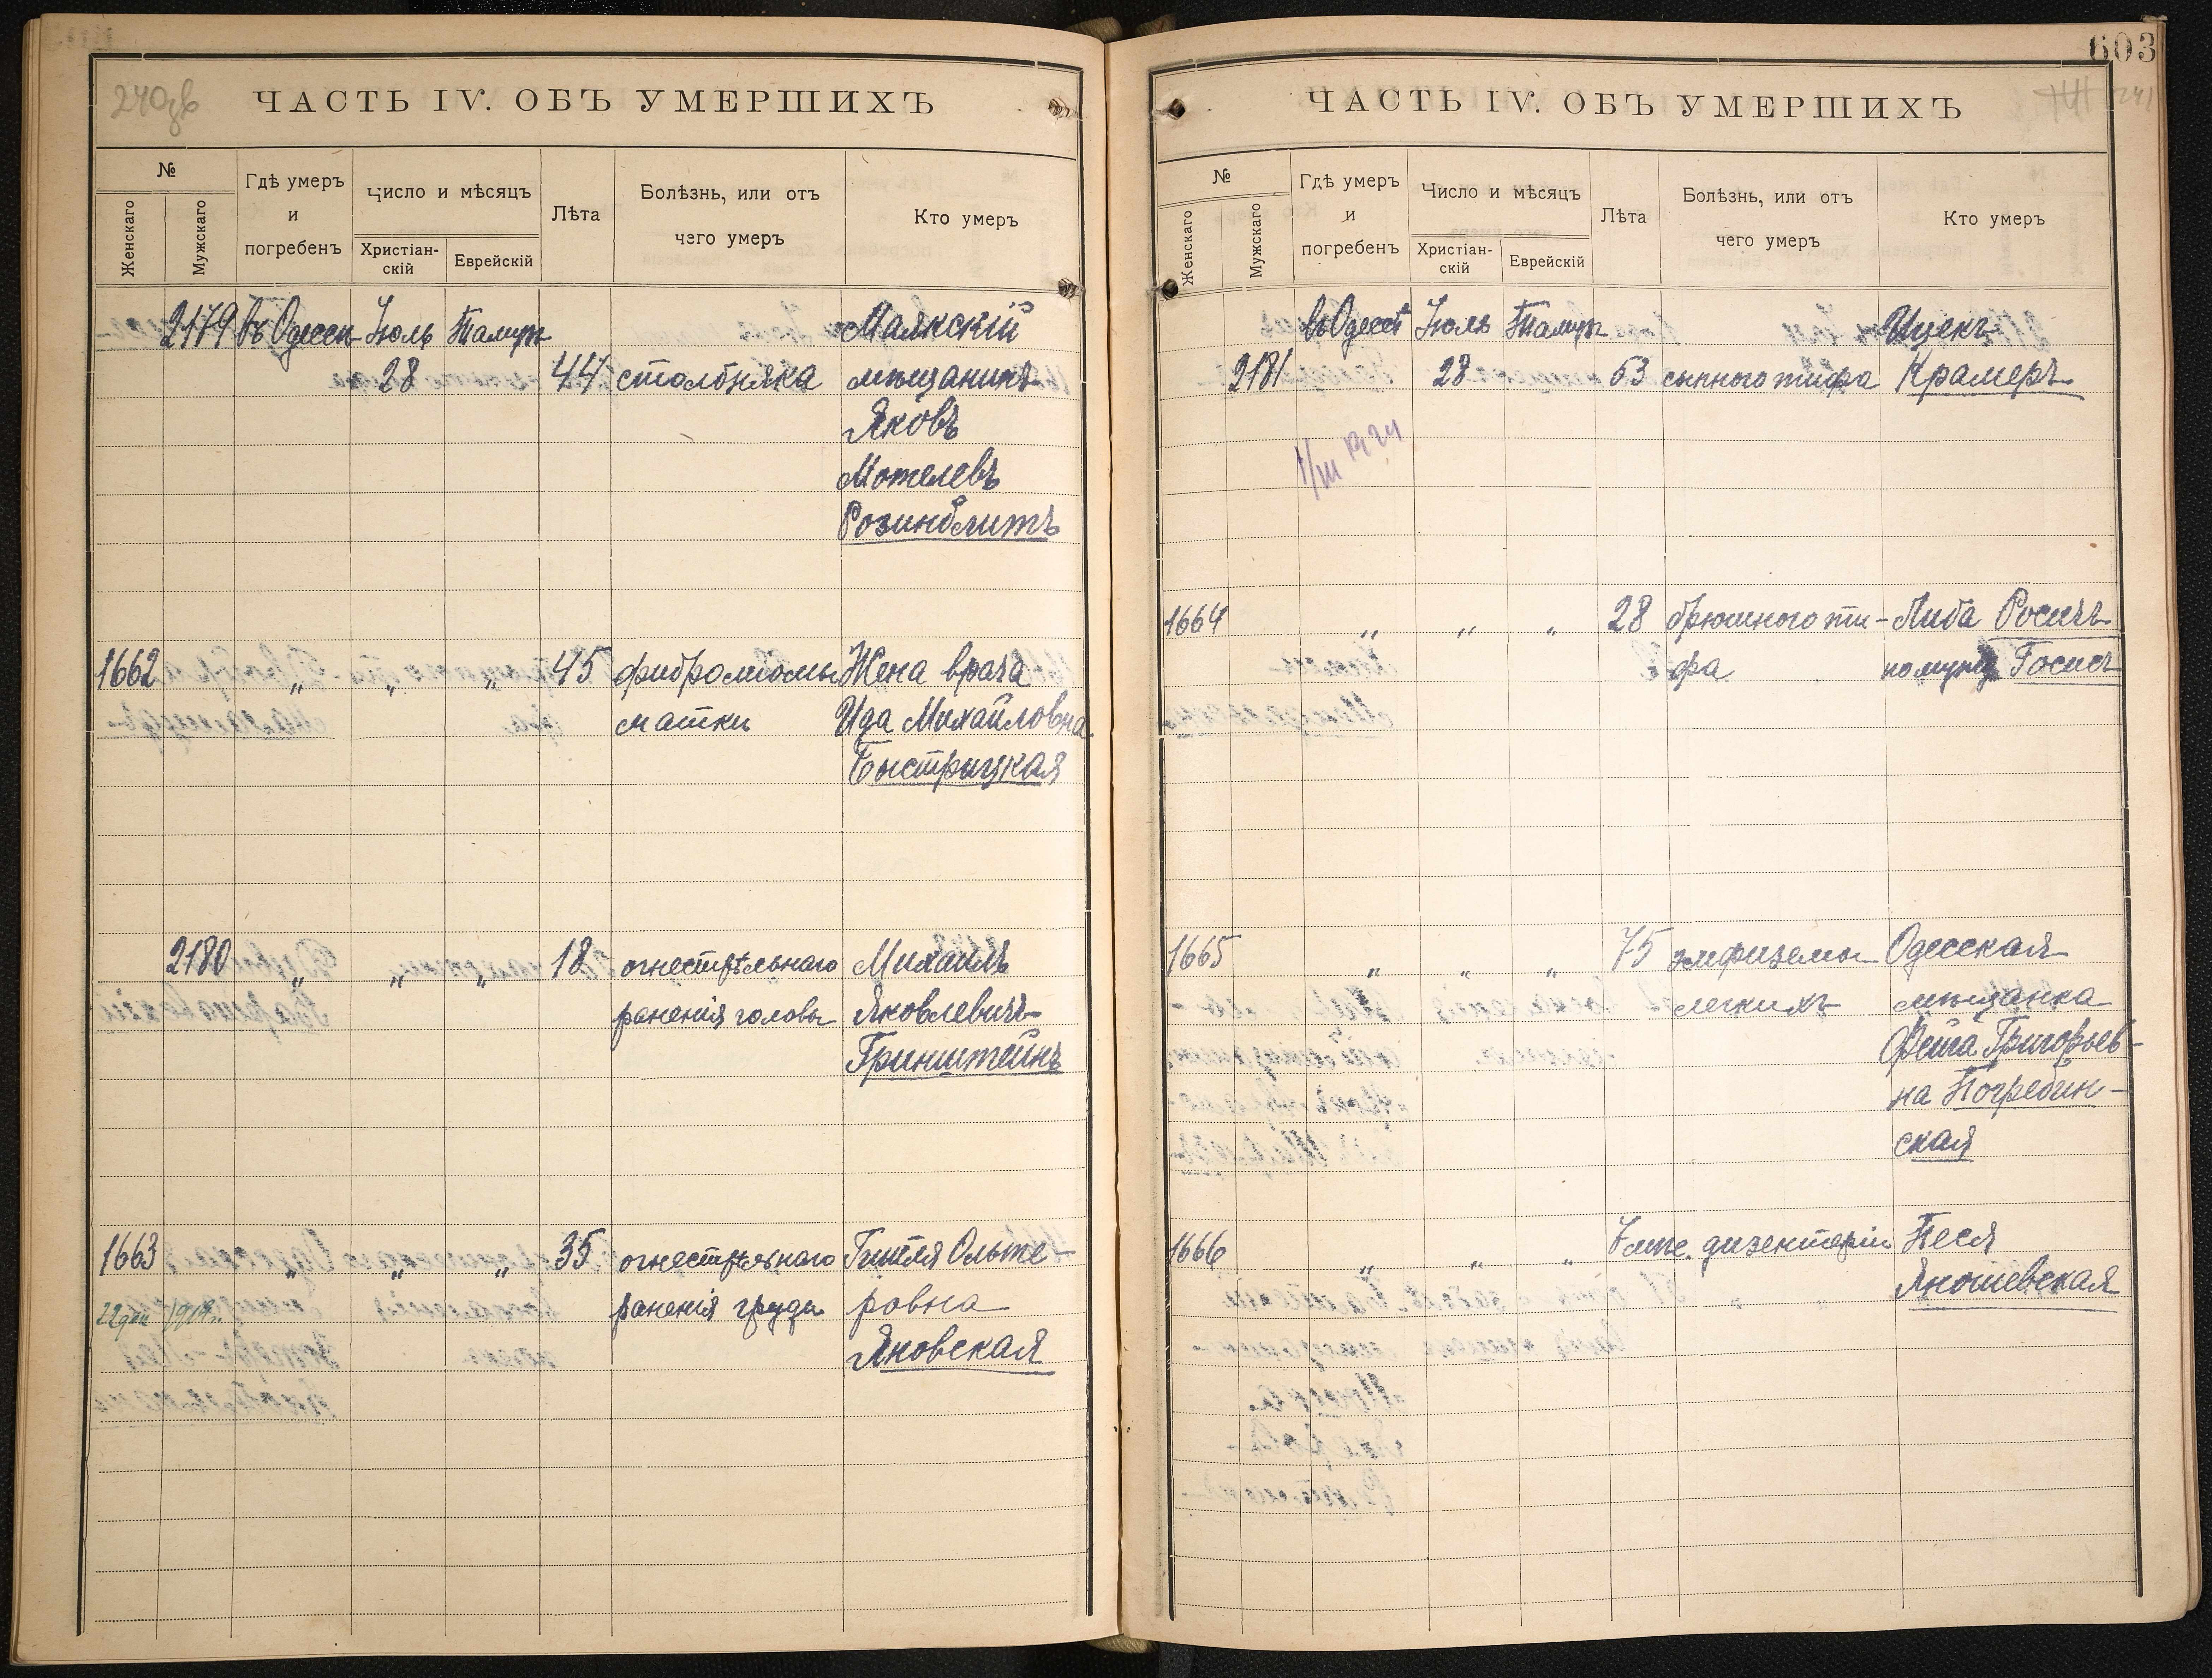 240об
ЧАСТЬ IV. ОБЪ УМЕРШИХЪ
№
Женскаго
Мужскаго
Гдѣ умеръ
и
погребенъ
Число и мѣсяцъ
Христіан-
скій
Еврейскій
Лѣта
Болѣзнь, или отъ
чего умеръ
Кто умеръ
2179 въ Одессѣ Іюль Тамузъ Маякскій
28 44 столбняка мѣщанинъ
Яковъ
Мотелевъ
Розинблитъ
1662 „ „ „ 45 фиброміомы Жена врача
матки Ида Михайловна
Быстрицкая
2180 „ „ „ 18 огнестрѣльнаго Михаилъ
раненія головы Яковлевичъ
Гринштейнъ
1663 „ „ „ 35 огнестрѣльнаго Гитля Ольте-
раненія груди ровна
Яновская
603
241
ЧАСТЬ IV. ОБЪ УМЕРШИХЪ
№
Женскаго
Мужскаго
Гдѣ умеръ
и
погребенъ
Число и мѣсяцъ
Христіан-
скій
Еврейскій
Лѣта
Болѣзнь, или отъ
чего умеръ
Кто умеръ
въ Одессѣ Іюль Тамузъ Ицекъ
2181 28 53 сыпного тифа Крамеръ
1664 „ „ „ 28 брюшного ти- Либа
фа по мужу
1665 „ „ „ 75 эмфиземы Одесская
легкихъ мѣщанка
Фейга Григорьев-
на Погребин-
ская
1666 „ „ „ 7 дизентеріи Песя
Яношевская